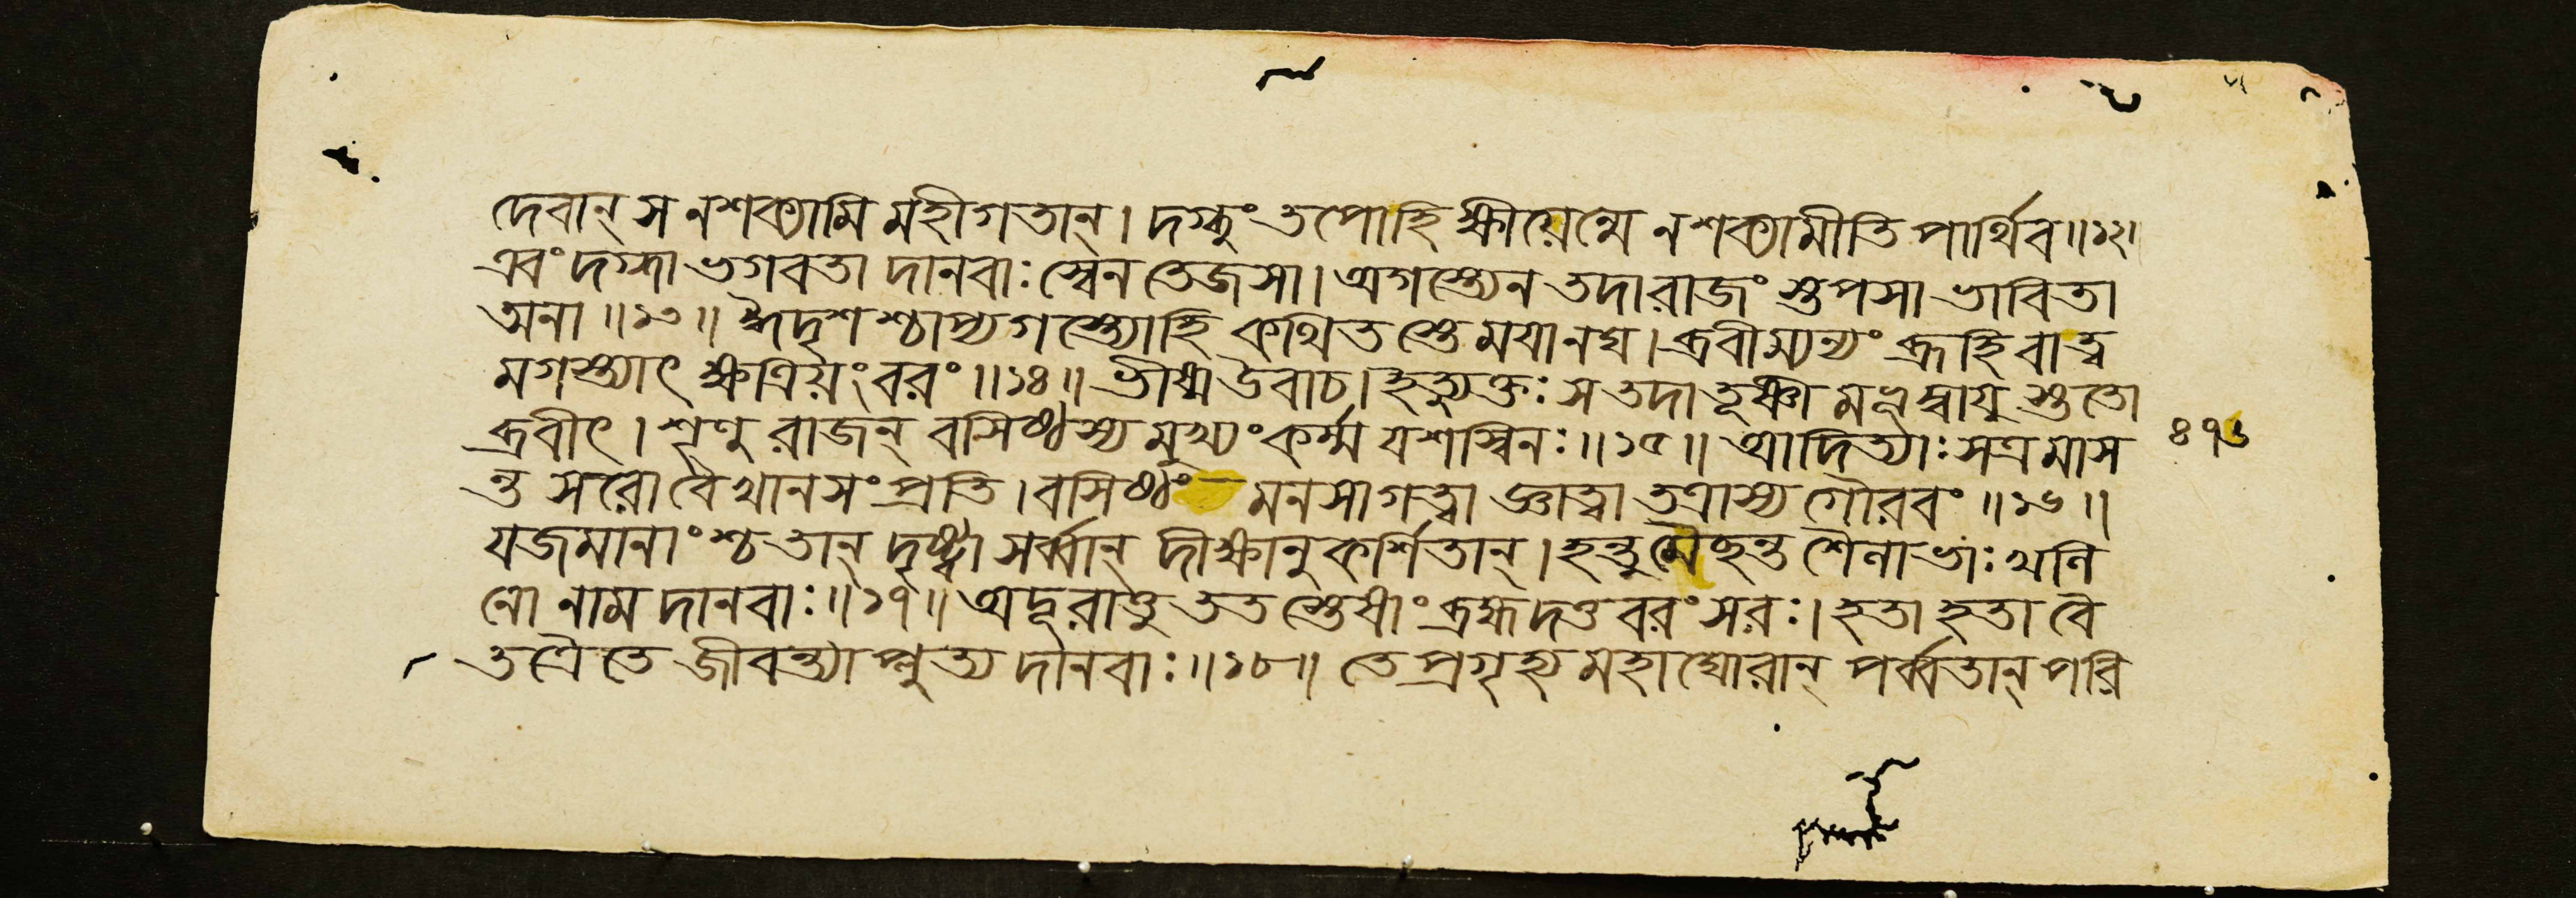 দেবান্ স ন শক্যামি মহীগতান্। দগ্ধুং তপো হি ক্ষীয়েন্মে ন শক্যামীতি পার্থিব॥১২।
এবং দগ্ধা ভগবতা দানবাঃ স্বেন তেজসা। অগস্ত্যেন তদা রাজং স্তপসা ভাবিতা
ত্মনা॥১৩॥ ঈদৃশশ্চাপ্যগস্ত্যো হি কথিতস্তে ময়ানঘ। ব্রবীম্যন্যং ব্রূহি বা ত্ব
মগস্ত্যাৎ ক্ষত্রিয়ং বরং॥১৪॥ ভীষ্ম উবাচ। ইত্যুক্তঃ স তদা তূষ্ণী মভূদ্বায়ু স্ততো
ব্রবীৎ। শৃণু রাজন্ বসিষ্ঠস্য মুখ্যং কর্ম্ম যশস্বিনঃ॥১৫॥ আদিত্যাঃ সত্রমাস ৪৭৬
ন্ত সরো বৈখানসং প্রতি। বসিষ্ঠং মনসা গত্বা জ্ঞাত্বা তত্রাস্য গৌরবং॥১৬॥
যজমানাংশ্চ তান্ দৃষ্ট্বা সর্ব্বান্ দীক্ষানুকর্শিতান্। হন্তুমৈছন্ত শৈনাভাঃ খনি
নো নাম দানবাঃ॥১৭॥ অদূরাত্তু ততস্তেষাং ব্রহ্মদত্তবরং সরঃ। হতা হতা বৈ
তত্রৈতে জীবন্ত্যাপ্লুত্য দানবাঃ॥১৮॥ তে প্রগৃহ্য মহাঘোরান্ পর্ব্বতান্ পরি